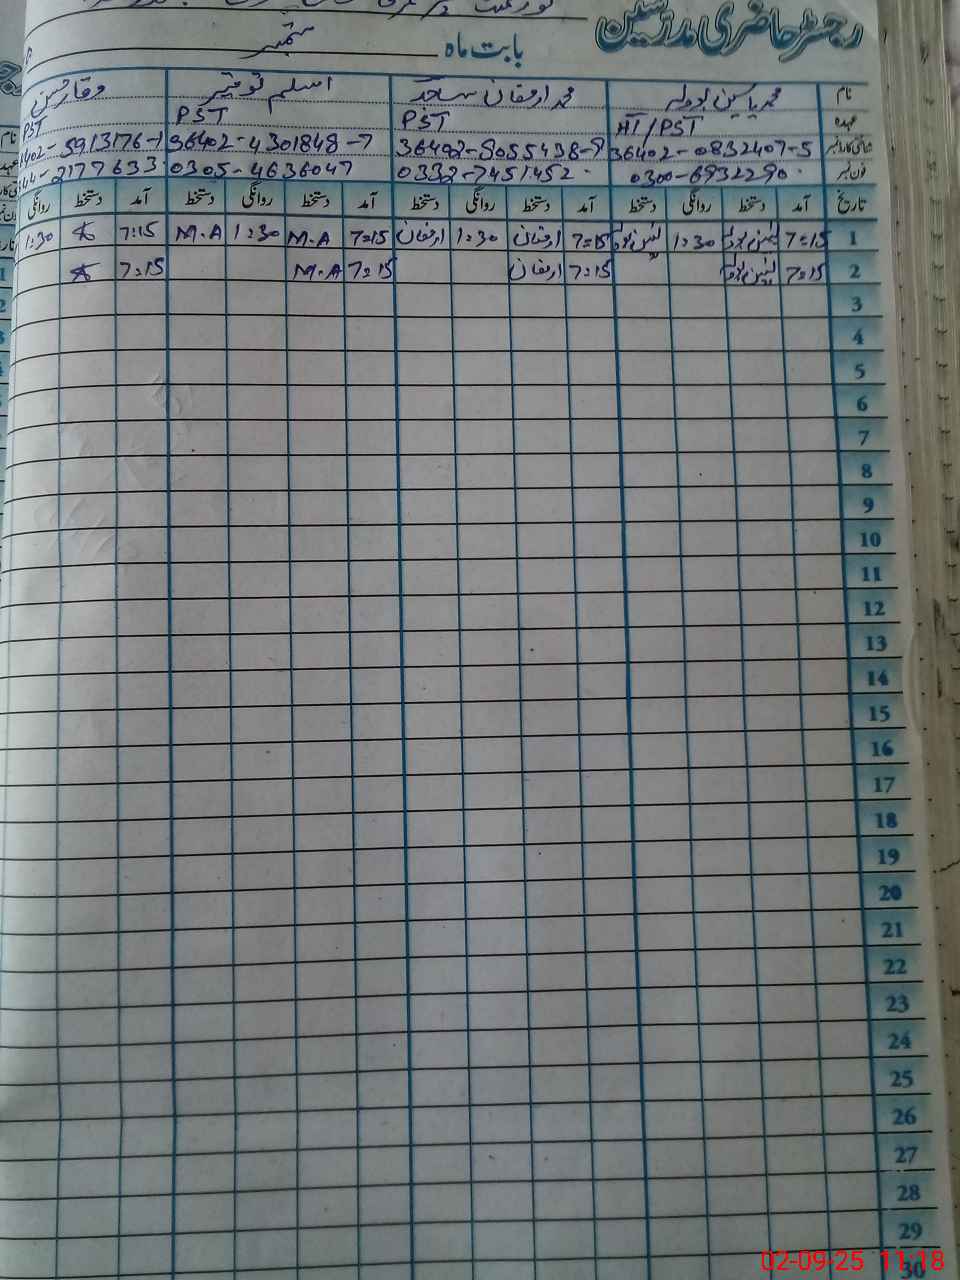 رجسٹر حاضری مدرسین
بابت ماہ ستمبر
نام محمد یاسین محمد ارمغان ساجد اسلم توقیر وقار حسن
عہدہ HT/PST PST PST PST
36402-0832407-5 36402-5055438-9 36402-4301848-7 402-5913176-1
فون نمبر 0300-6932290 0332-7451452 0305-4636047 44-2177633
تاریخ آمد دستخط روانگی دستخط آمد دستخط روانگی دستخط آمد دستخط روانگی دستخط آمد دستخط روانگی
1 7:15 1:30 7:15 ارمغان 1:30 ارمغان 7:15 M.A 1:30 M.A 7:15 1:30
2 7:15 7:15 ارمغان 7:15 M.A 7:15
3
4
5
6
7
8
9
10
11
12
13
14
15
16
17
18
19
20
21
22
23
24
25
26
27
28
29
30
02-09-25 11:18